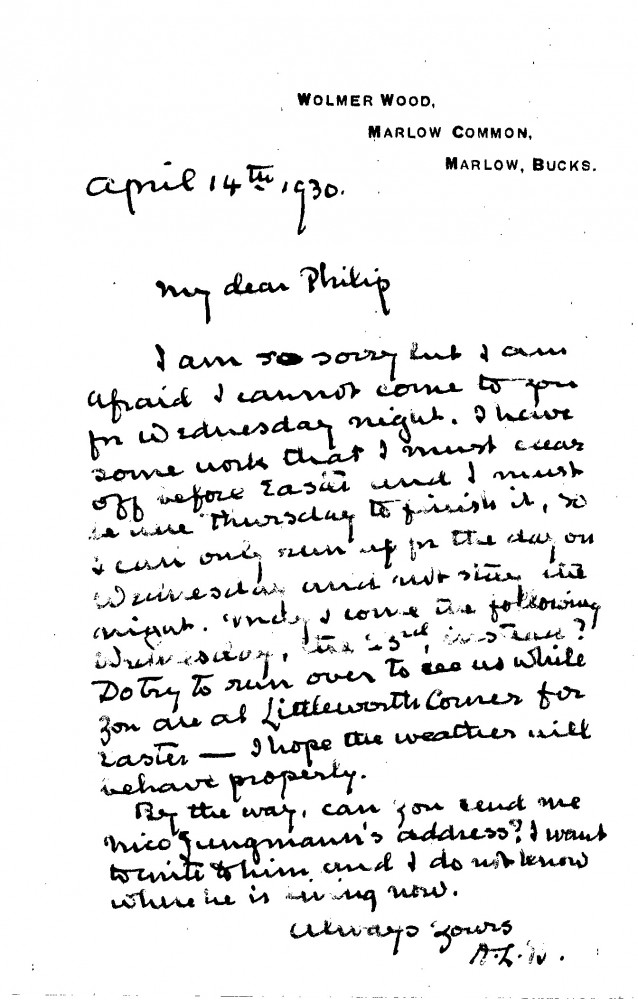 WOLMER WOOD,
MARLOW COMMON,
MARLOW, BUCKS.
April 14th 1930.
My dear Philip
I am so sorry but I am
afraid I cannot come to you
for Wednesday night. I have
some work that I must clear
off before Easter and I must
be here Thursday to finish it, so
I can only run up for the day on
Wednesday and not stay the
night. May I come the following
Wednesday, the 23rd, instead?
Do try to run over to see us while
you are at Littleworth Corner for
Easter — I hope the weather will
behave properly.
By the way, can you send me
Nico Jungmann's address? I want
to write to him and I do not know
where he is living now.
Always yours
A.L.B.